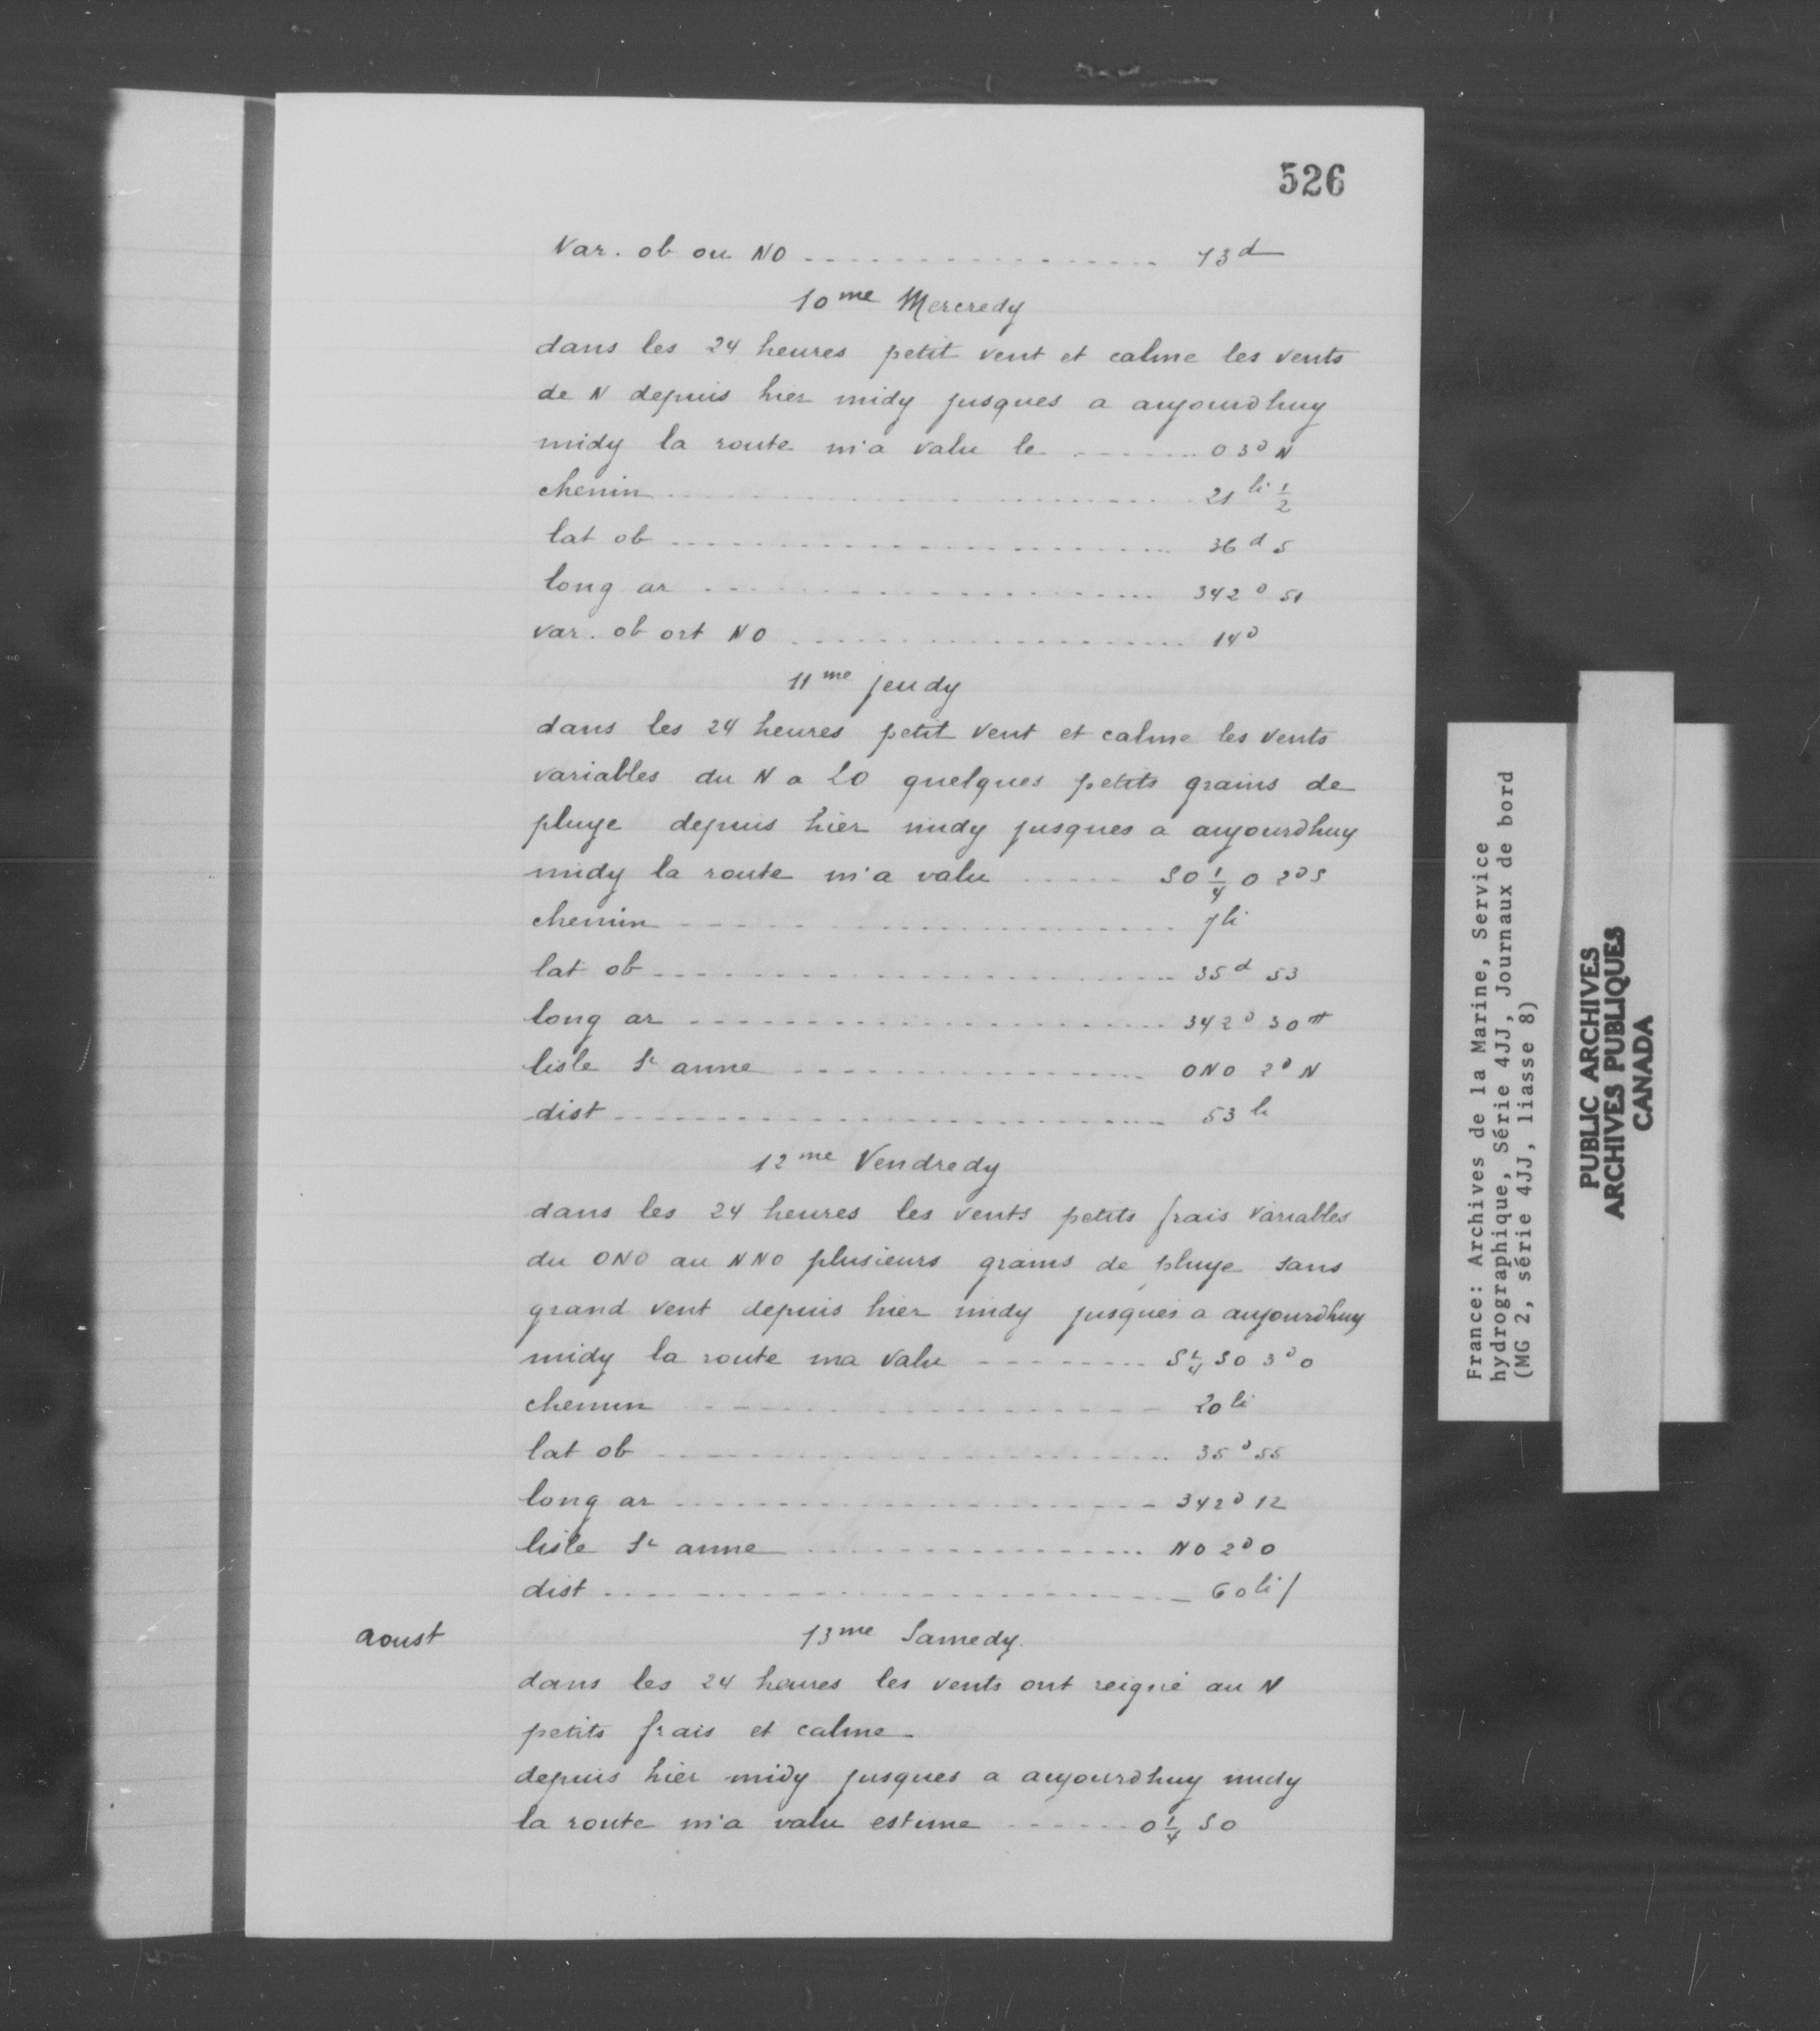 526
Var. ob ou NO ................. 13 d
10 me Mercredy
dans les 24 heures petit vent et calme les vents
de N depuis hier midy jusques a aujourdhuy
midy la route m'a valu le ........ O 3d N
chemin ........................ 21 li 1/2
lat ob ........................ 36 d 5
long ar ........................ 342 d 51
var. ob ort NO .................... 14 d
11 me jeudy
dans les 24 heures petit vent et calme les vents
variables du N a LO quelques petits grains de
pluye depuis hier midy jusques a aujourdhuy
midy la route m'a valu ..... SO 1/4 O 2d S
chemin ........................ 7 li
lat ob ........................ 35 d 53
long ar ........................ 342 d 30 m
lisle Ste anne .................. ONO 2d N
dist ........................ 53 li
12 me Vendredy
dans les 24 heures les vents petits frais variables
du ONO au NNO plusieurs grains de pluye sans
grand vent depuis hier midy jusques a aujourdhuy
midy la route ma valu ........ S 1/4 SO 3d O
chemin .................... 20 li
lat ob ........................ 35 d 55
long ar ........................ 342 d 12
lisle Ste anne ................. NO 2d O
dist ........................ 60 li /
aoust
13 me Samedy.
dans les 24 heures les vents ont reigné au N
petits frais et calme
depuis hier midy jusques a aujourdhuy midy
la route m'a valu estime ...... O 1/4 SO
France: Archives de la Marine, Service
hydrographique, Série 4JJ, Journaux de bord
(MG 2, série 4JJ, liasse 8)
PUBLIC ARCHIVES
ARCHIVES PUBLIQUES
CANADA